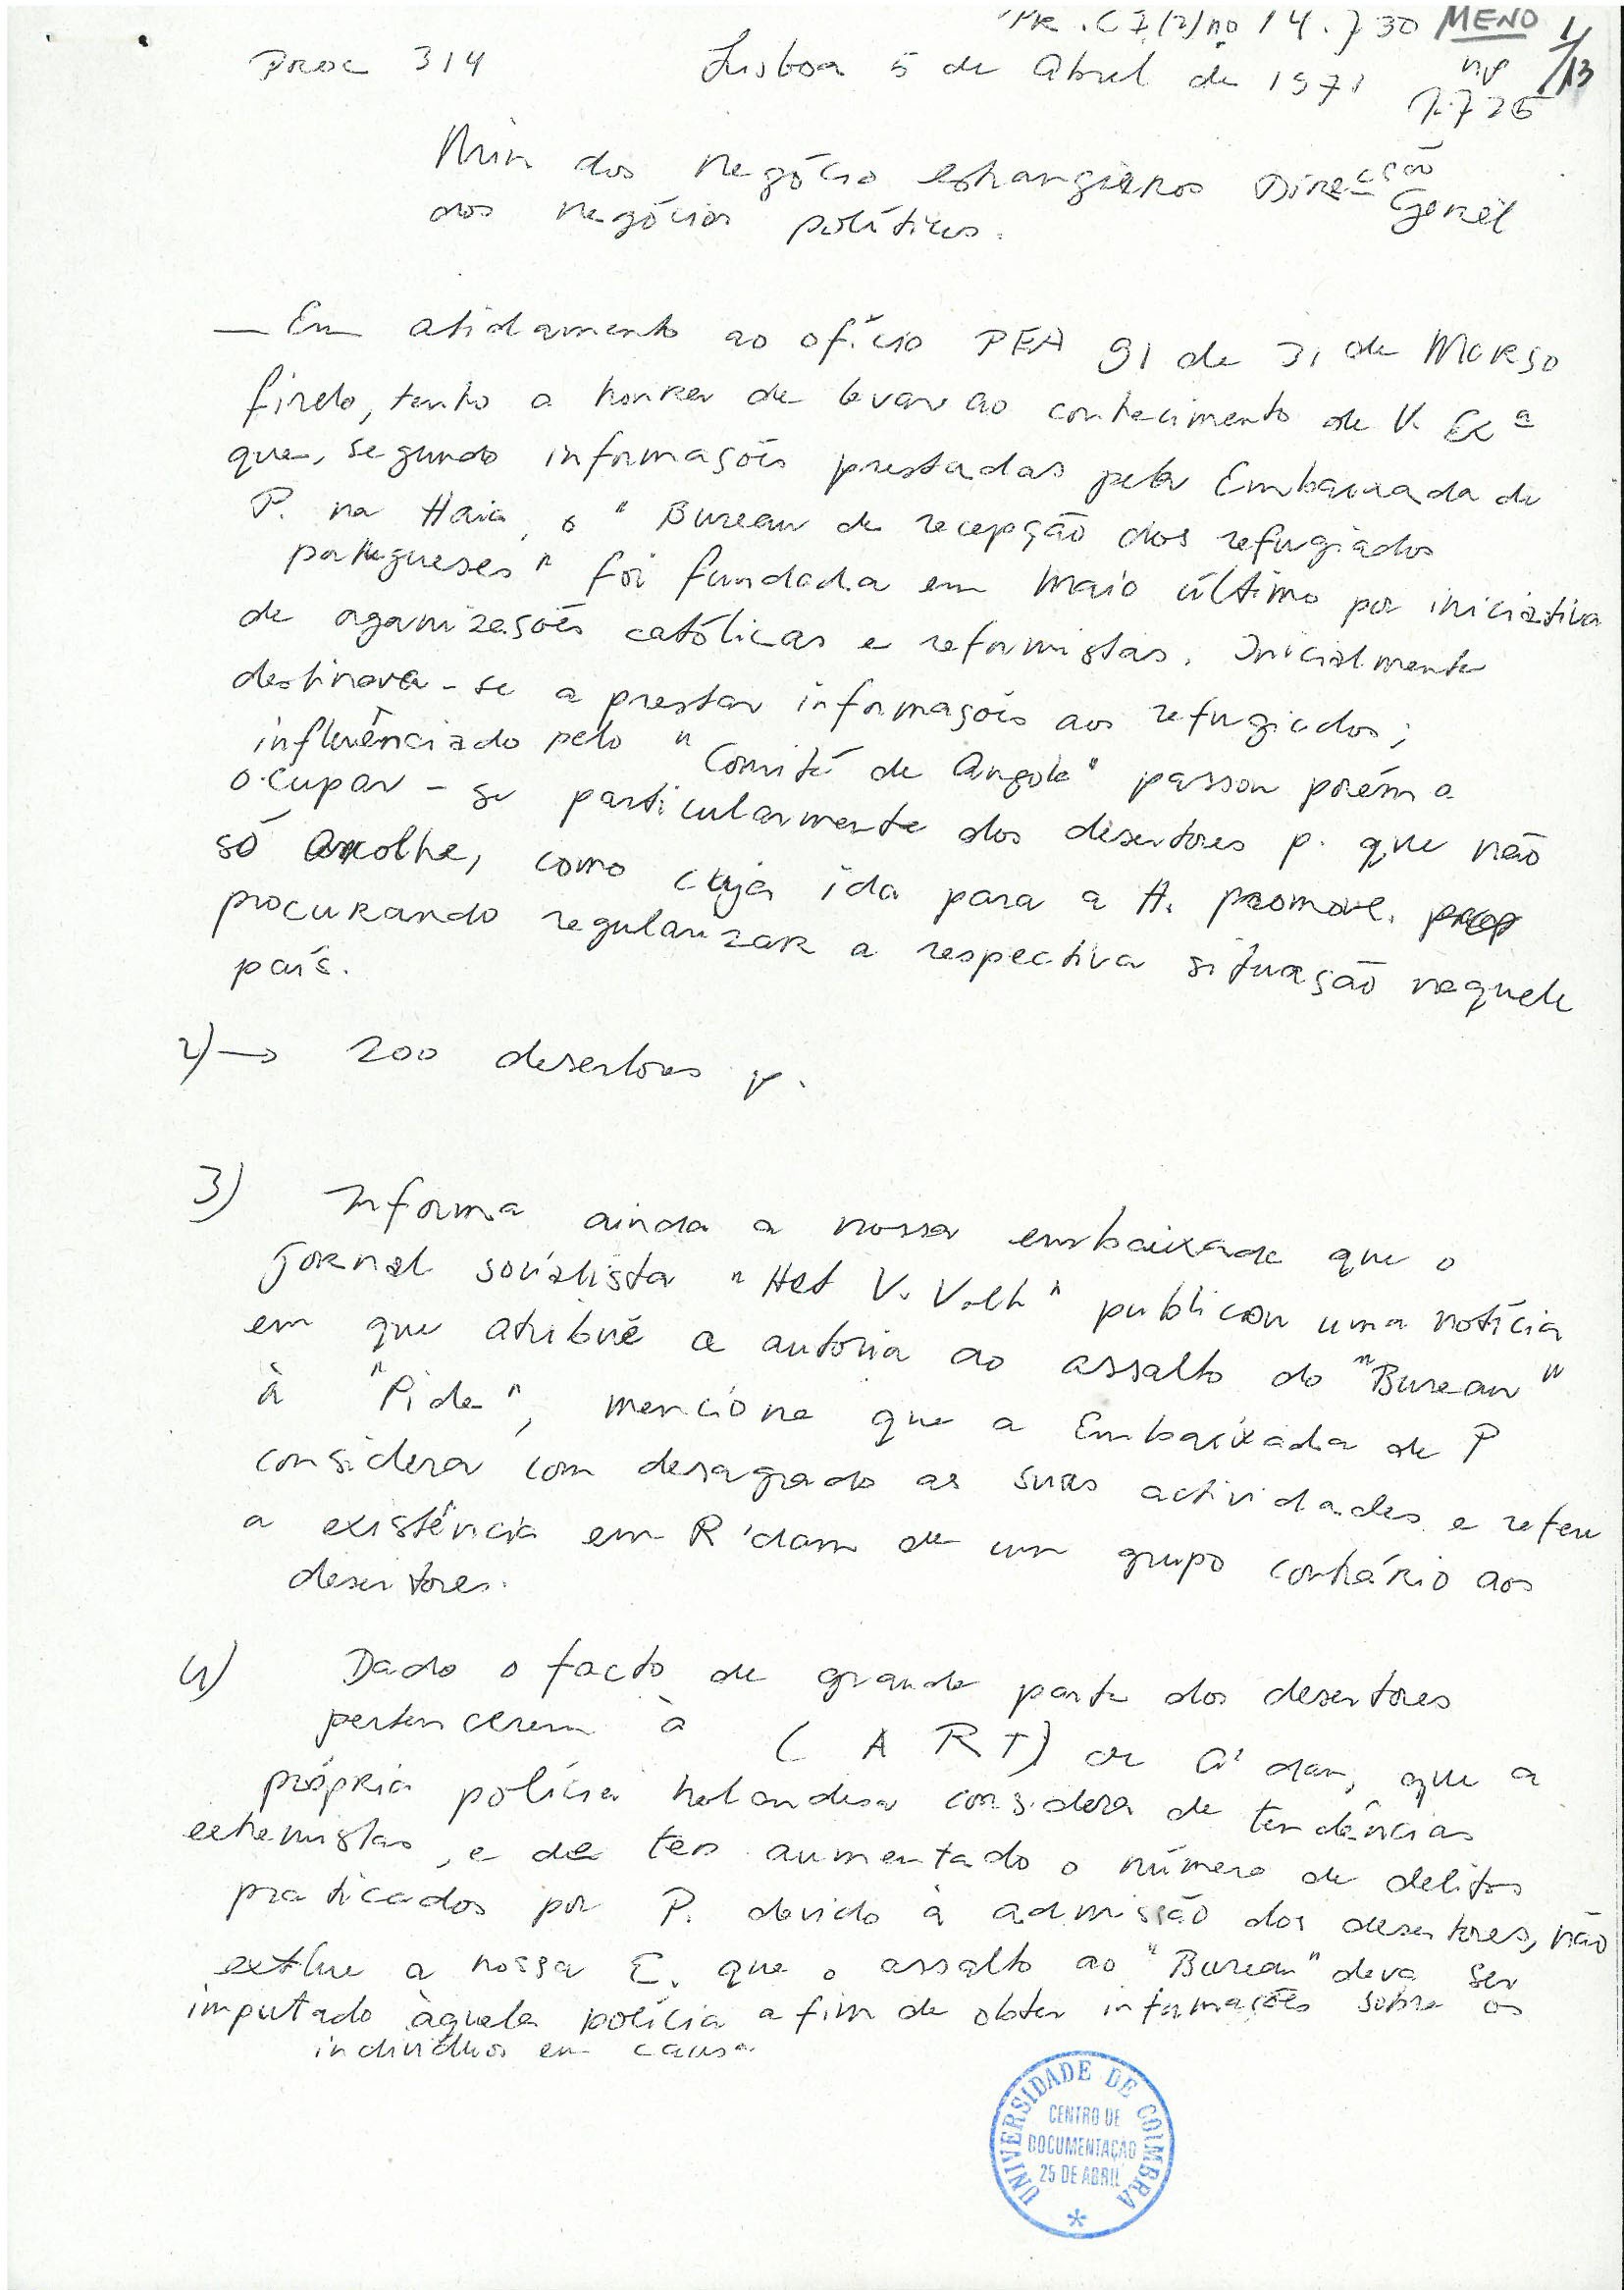 PR. C 7.(2) no 14.730 MENO 1/13
Proc 314 Lisboa 5 de Abril de 1971 nº
Min dos Negócio estrangieros Direcção
dos negócios políticos. Geral
— Em atidamento ao ofício PEA 91 de 31 de Março
findo, tenho a honra de levar ao conhecimento de V. Exª
que, segundo informações prestadas pela Embaixada de
P. na Haia, o "Bureau de recepção dos refugiados
portugueses" foi fundada em Maio último por iniciativa
de aganizações católicas e reformistas. Inicialmente
destinava-se a prestar informações aos refugiados;
influênciado pelo "Comité de Angola" passou porém a
ocupar-se particularmente dos desertores p. que não
só acolhe, como cuja ida para a H. promove,
procurando regularizar a respectiva situação naquele
país.
2) → 200 desertores p.
3) Informa ainda a nossa embaixada que o
Jornal socialista "Het V. Volk" publicou uma notícia
em que atribuê a autoria ao assalto do "Bureau"
à "Pide", menciona que a Embaixada de P
considera com desagrado as suas actividades e refere
a existência em R'dam de um grupo contrário aos
desertores.
4) Dado o facto de grande parte dos desertores
pertencerem à (A R T) de A'dam, que a
própria polícia holandesa considera de tendências
extremistas, e de ter aumentado o número de delitos
praticados por P. devido à admissão dos desertores, não
exclue a nossa E. que o assalto ao "Bureau" deva ser
imputado àquela polícia a fim de obter informações sobre os
individuos em causa
UNIVERSIDADE DE COIMBRA
CENTRO DE
DOCUMENTAÇÃO
25 DE ABRIL
*